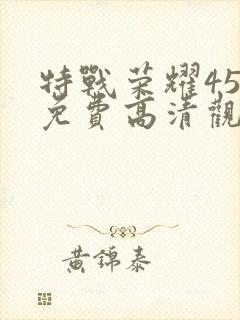 特戰荣耀45
免費高清觀
黃錦泰